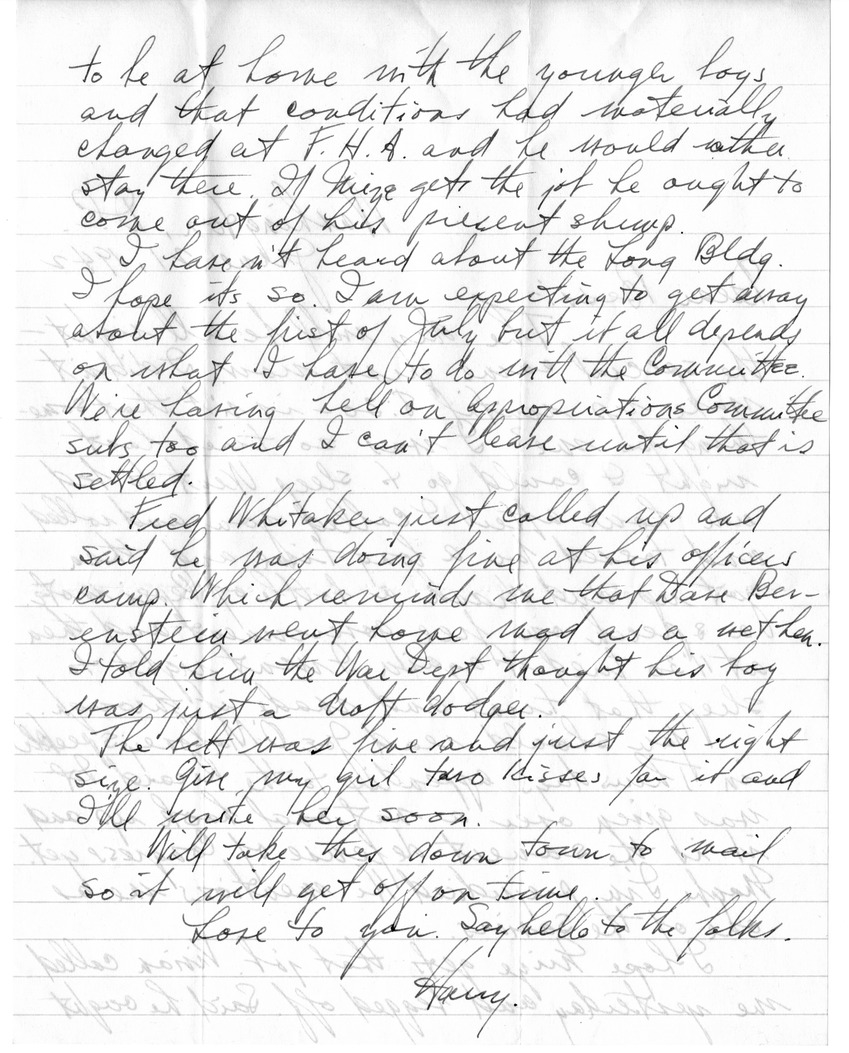 to be at home with the younger boys
and that conditions had materially
changed at F.H.A. and he would rather
stay there. If Mize gets the job he ought to
come out of his present slump.
I haven't heard about the Long Bldg.
I hope its so. I am expecting to get away
about the first of July but it all depends
on what I have to do with the Committee.
We're having hell on Appropriations Committee
subs too and I can't leave until that is
settled.
Fred Whitaker just called up and
said he was doing fine at his officers
camp. Which reminds me that Dave Ber-
enstein went home mad as a wet hen.
I told him the War Dept thought his boy
was just a draft dodger.
The belt was fine and just the right
size. Give my girl two kisses for it and
I'll write her soon.
Will take this down town to mail
so it will get off on time.
Love to you. Say hello to the folks.
Harry.